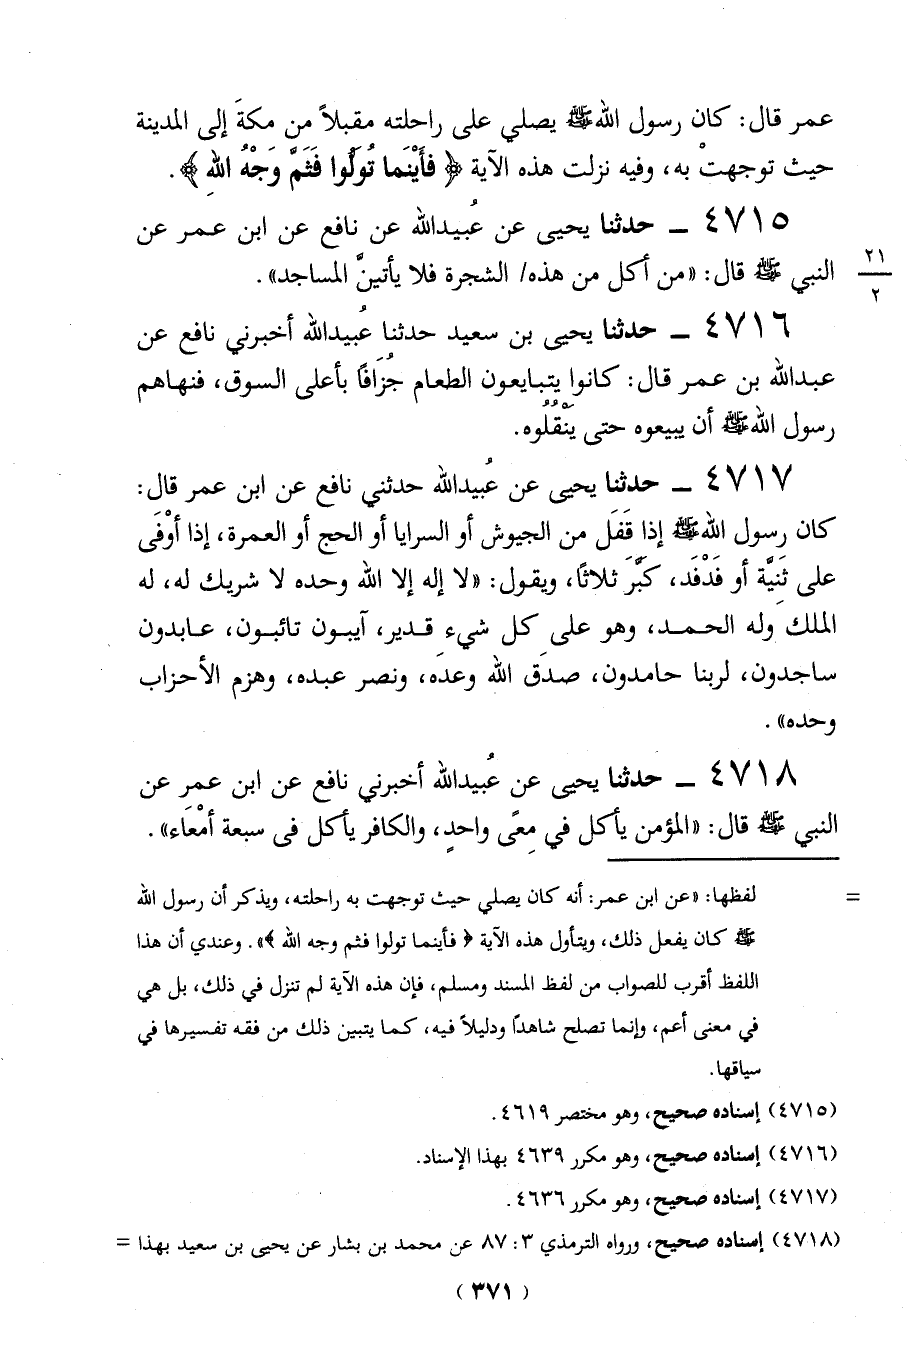 عمر قال: كان رسول الله ﷺ يصلي على راحلته مقبلاً من مكةَ إلى المدينة
حيث توجهتْ به، وفيه نزلت هذه الآية ﴿ فَأَيْنَما تُوَلُّوا فَثَمَّ وَجْهُ اللهِ ﴾.
٤٧١٥ ـ حدثنا يحيى عن عُبيدالله عن نافع عن ابن عمر عن
النبي ﷺ قال: «من أكل من هذه/ الشجرة فلا يأتينَّ المساجد».
٢١
٢
٤٧١٦ ـ حدثنا يحيى بن سعيد حدثنا عُبيدالله أخبرني نافع عن
عبدالله بن عمر قال: كانوا يتبايعون الطعام جُزَافًا بأعلى السوق، فنهاهم
رسول الله ﷺ أن يبيعوه حتى يَنْقُلُوه.
٤٧١٧ ـ حدثنا يحيى عن عُبيدالله حدثني نافع عن ابن عمر قال:
كان رسول الله ﷺ إذا قَفَل من الجيوش أو السرايا أو الحج أو العمرة، إذا أوْفَى
على ثَنِيَّة أو فَدْفَد، كبَّر ثلاثًا، ويقول: «لا إله إلا الله وحده لا شريك له، له
الملك وله الحمد، وهو على كل شيء قدير، آيبون تائبون، عابدون
ساجدون، لربنا حامدون، صدَق الله وعدَه، ونصر عبده، وهزم الأحزاب
وحده».
٤٧١٨ ـ حدثنا يحيى عن عُبيدالله أخبرني نافع عن ابن عمر عن
النبي ﷺ قال: «المؤمن يأكل في مِعًى واحدٍ، والكافر يأكل فى سبعة أمْعَاء».
= لفظها: «عن ابن عمر: أنه كان يصلي حيث توجهت به راحلته، ويذكر أن رسول الله
ﷺ كان يفعل ذلك، ويتأول هذه الآية ﴿ فأينما تولوا فثم وجه الله ﴾». وعندي أن هذا
اللفظ أقرب للصواب من لفظ المسند ومسلم، فإن هذه الآية لم تنزل في ذلك، بل هي
في معنى أعم، وإنما تصلح شاهدًا ودليلاً فيه، كما يتبين ذلك من فقه تفسيرها في
سياقها.
(٤٧١٥) إسناده صحيح، وهو مختصر ٤٦١٩.
(٤٧١٦) إسناده صحيح، وهو مكرر ٤٦٣٩ بهذا الإسناد.
(٤٧١٧) إسناده صحيح، وهو مكرر ٤٦٣٦.
(٤٧١٨) إسناده صحيح، ورواه الترمذي ٣: ٨٧ عن محمد بن بشار عن يحيى بن سعيد بهذا =
( ٣٧١ )